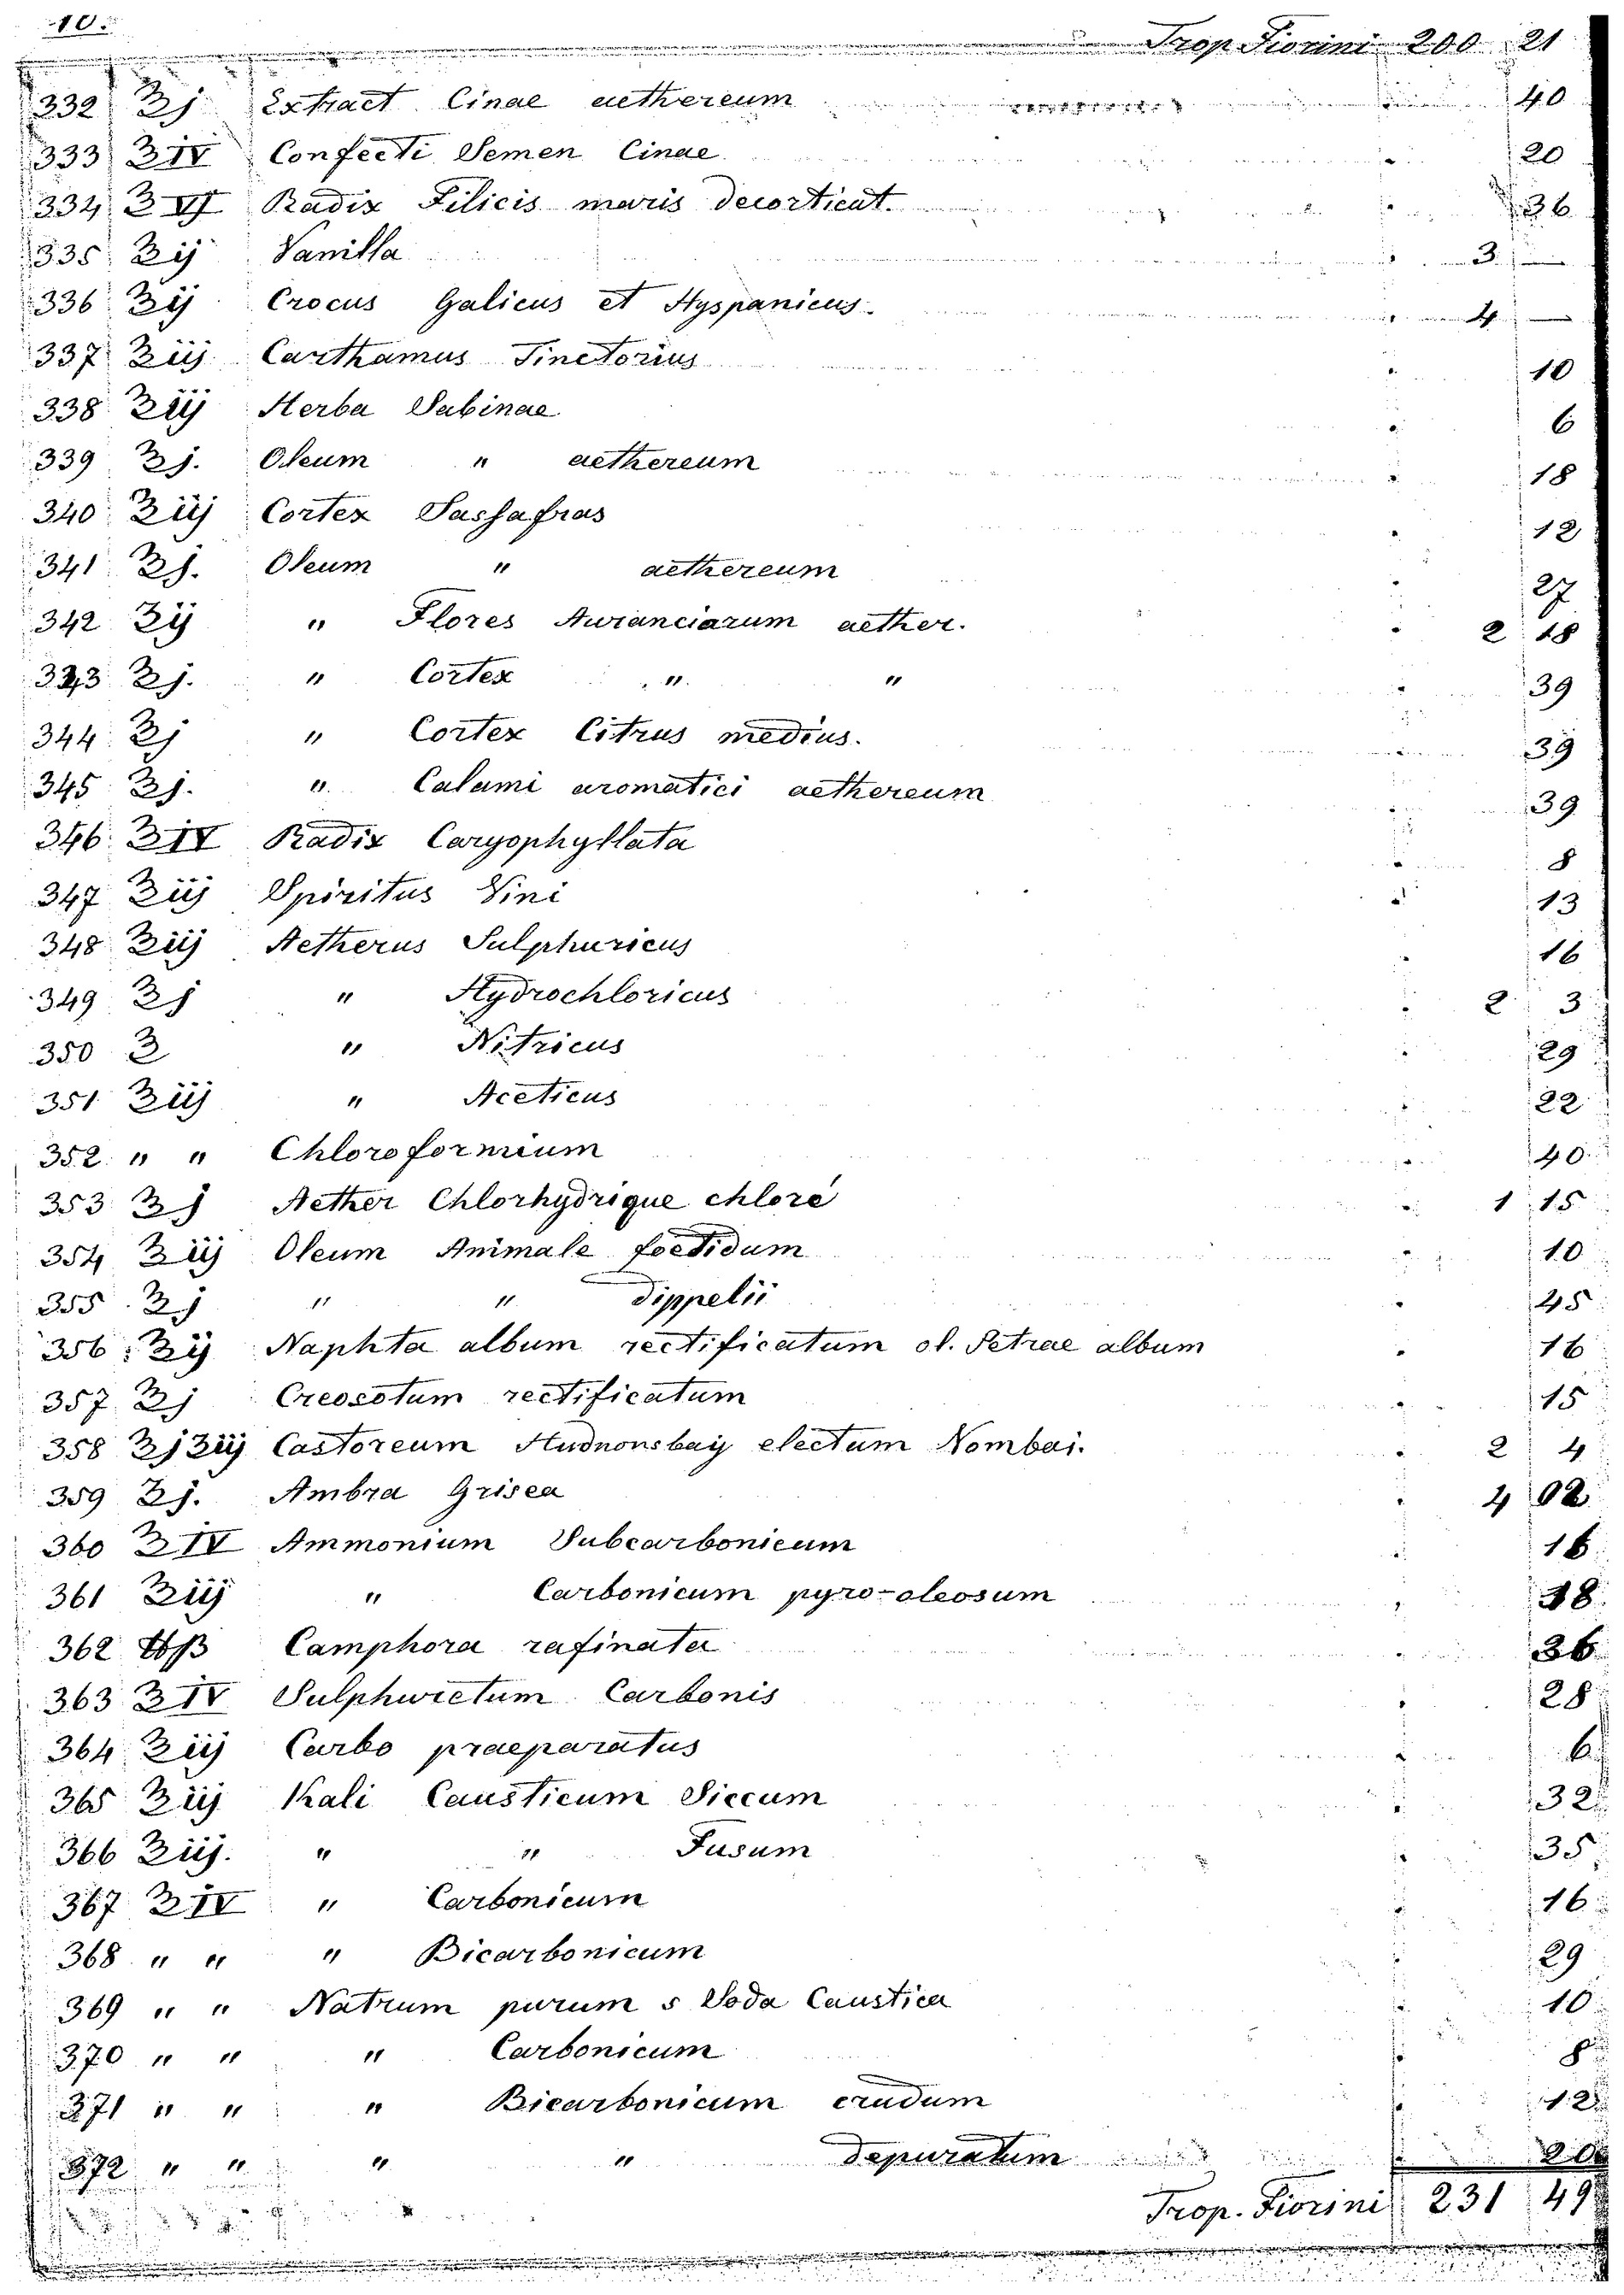 10.
Trop Fiorini 200 21
332 Ʒj Extract Cinae aethereum 40
333 ℥IV Confecti Semen Cinae 20
334 ℥VI Radix Filicis maris decorticat. 36
335 Ʒij Vanilla 3 —
336 Ʒij Crocus Galicus et Hyspanicus. 4 —
337 ℥iij Carthamus Tinctorius 10
338 ℥iij Herba Sabinae 6
339 Ʒj. Oleum " aethereum 18
340 ℥iij Cortex Sassafras 12
341 Ʒj. Oleum " aethereum 27
342 Ʒij " Flores Auranciarum aether. 2 18
343 Ʒj. " Cortex " " 39
344 Ʒj " Cortex Citrus medius. 39
345 Ʒj. " Calami aromatici aethereum 39
346 ℥IV Radix Caryophyllata 8
347 ℥iij Spiritus Vini 13
348 ℥iij Aetherus Sulphuricus 16
349 ℥j " Hydrochloricus 2 3
350 ℥ " Nitricus 29
351 ℥iij " Aceticus 22
352 " " Chloroformium 40
353 ℥j Aether Chlorhydrique chloré 1 15
354 ℥iij Oleum Animale foetidum 10
355 ℥j " " Dippelii 45
356 ℥ij Naphta album rectificatum ol. Petrae album 16
357 ℥j Creosotum rectificatum 15
358 ℥j Ʒiij Castoreum Hudnonsbay electum Nombai. 2 4
359 Ʒj. Ambra Grisea 4 02
360 ℥IV Ammonium Subcarbonicum 16
361 ℥iij " Carbonicum pyro-oleosum 18
362 ℔ß Camphora rafinata 36
363 ℥IV Sulphuretum Carbonis 28
364 ℥iij Carbo praeparatus 6
365 ℥iij Kali Causticum Siccum 32
366 ℥iij. " " Fusum 35
367 ℥IV " Carbonicum 16
368 " " " Bicarbonicum 29
369 " " Natrum purum s Soda Caustica 10
370 " " " Carbonicum 8
371 " " " Bicarbonicum crudum 12
372 " " " " depuratum 20
Trop. Fiorini 231 49